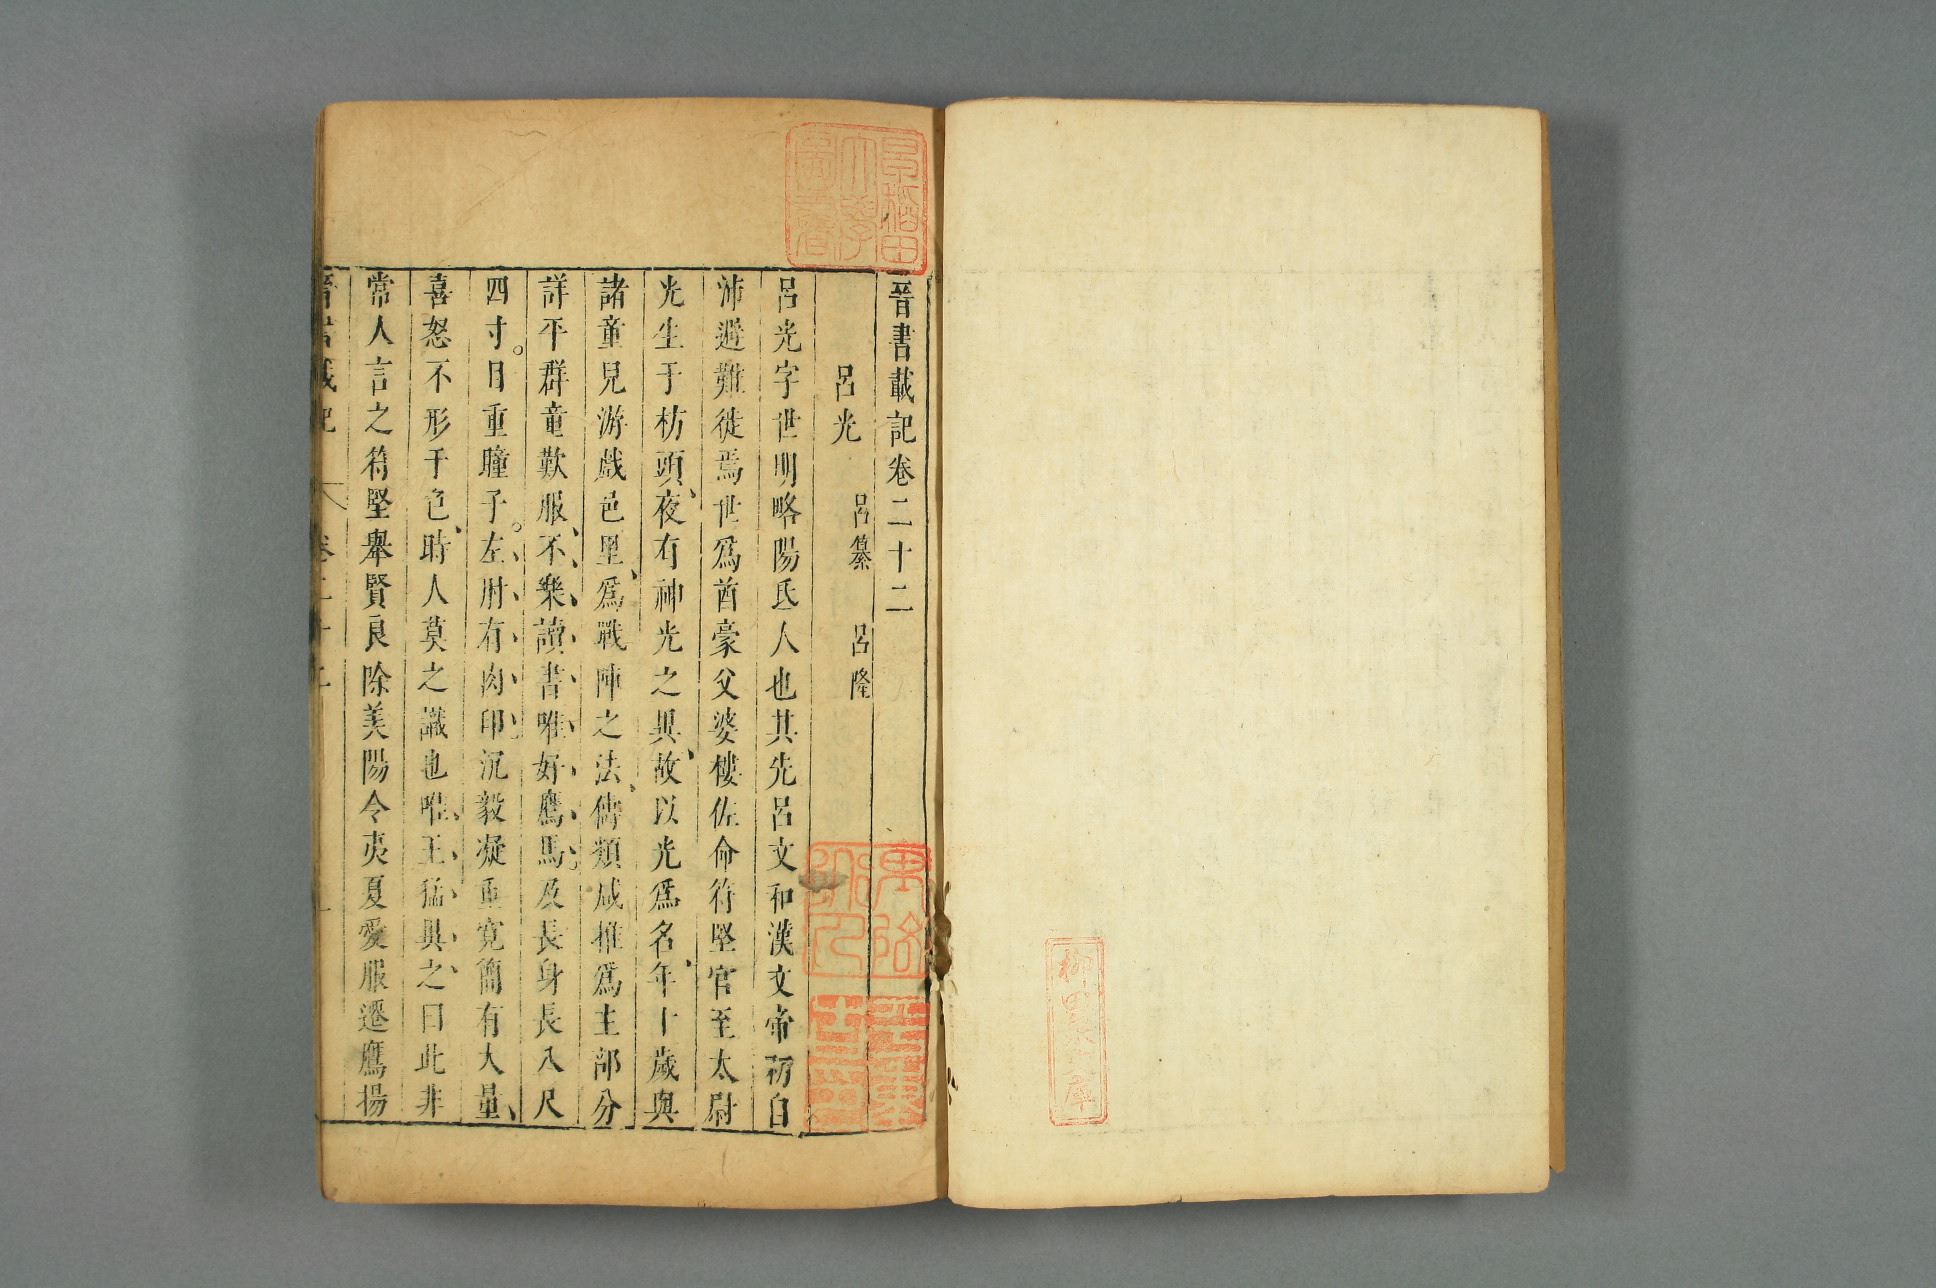 晉書載記卷二十二
呂光 呂纂 呂隆
呂光字世明略陽氐人也其先呂文和漢文帝初自
沛避難徙焉世爲酋豪父婆樓佐命符堅官至太尉
光生于枋頭、夜有神光之異、故以光爲名、年十歲與
諸童兒游戲邑里、爲戰陣之法、儔類咸推爲主部分
詳平群童歎服、不樂讀書唯好鷹馬。及長身長八尺
四寸。目重瞳子。左肘有肉印沉毅凝重寬簡有大量、
喜怒不形于色、時人莫之識也唯王猛異之曰此非
常人言之符堅舉賢良除美陽令夷夏愛服遷鷹揚
晉書載記 卷二十二 一
早稻田大學圖書